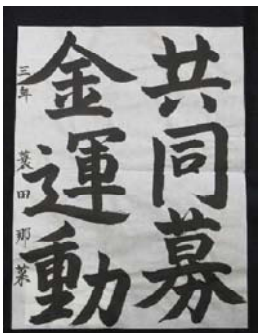 共同募
金運動
三年 蓑田那菜